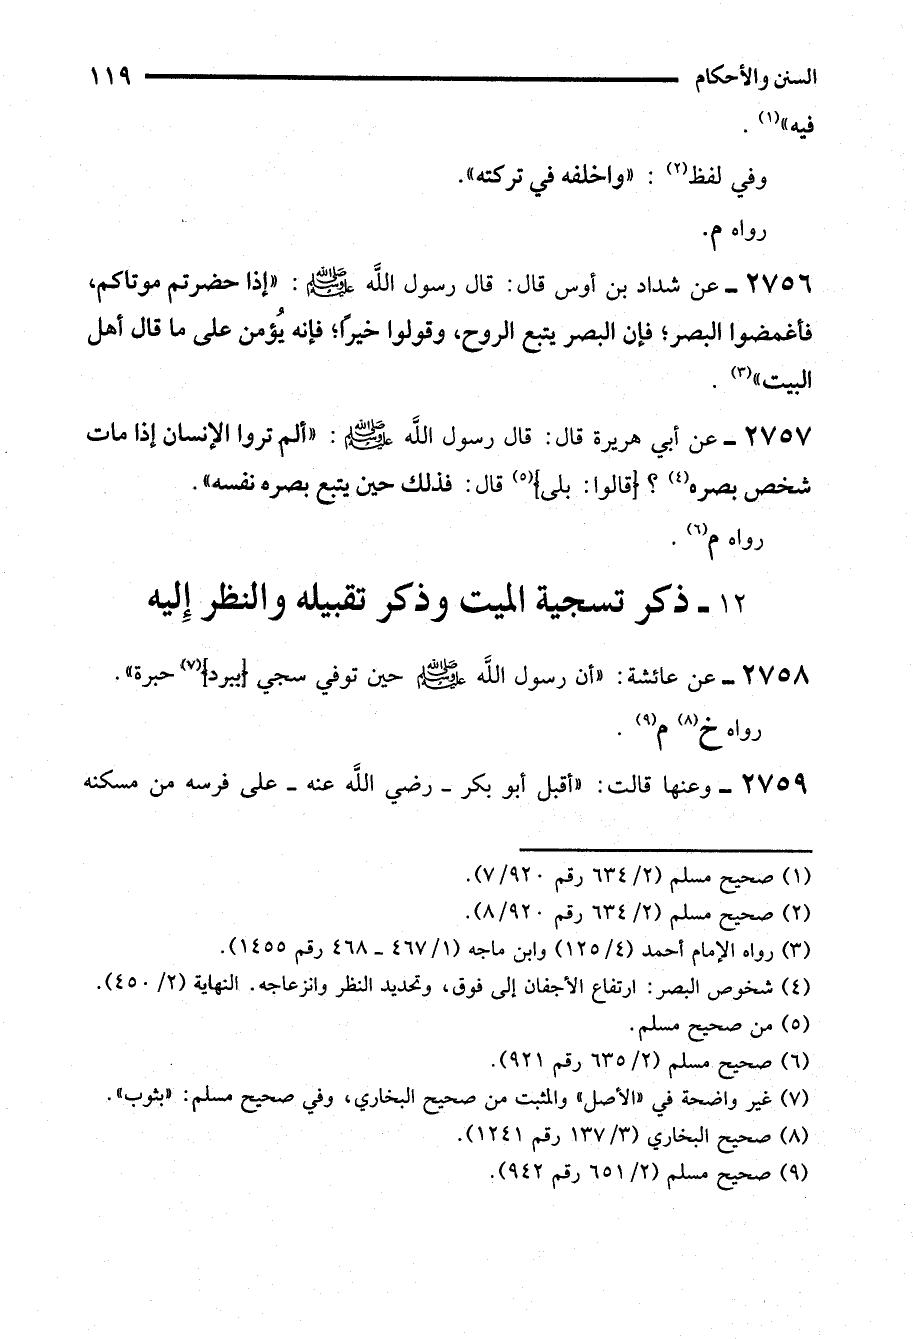 السنن والأحكام ١١٩
فيه»(١) .
وفي لفظ(٢) : «واخلفه في تركته».
رواه م.
٢٧٥٦ ـ عن شداد بن أوس قال: قال رسول اللَّه ﷺ : «إذا حضرتم موتاكم،
فأغمضوا البصر؛ فإن البصر يتبع الروح، وقولوا خيرًا؛ فإنه يُؤمن على ما قال أهل
البيت»(٣) .
٢٧٥٧ ـ عن أبي هريرة قال: قال رسول اللَّه ﷺ : «ألم تروا الإنسان إذا مات
شخص بصره(٤) ؟ {قالوا: بلى}(٥) قال: فذلك حين يتبع بصره نفسه».
رواه م(٦) .
١٢ ـ ذكر تسجية الميت وذكر تقبيله والنظر إِليه
٢٧٥٨ ـ عن عائشة: «أن رسول اللَّه ﷺ حين توفي سجي {ببرد}(٧) حبرة».
رواه خ(٨) م(٩) .
٢٧٥٩ ـ وعنها قالت: «أقبل أبو بكر ـ رضي اللَّه عنه ـ على فرسه من مسكنه
(١) صحيح مسلم (٢/ ٦٣٤ رقم ٩٢٠/ ٧).
(٢) صحيح مسلم (٢/ ٦٣٤ رقم ٩٢٠/ ٨).
(٣) رواه الإمام أحمد (٤/ ١٢٥) وابن ماجه (١/ ٤٦٧ ـ ٤٦٨ رقم ١٤٥٥).
(٤) شخوص البصر: ارتفاع الأجفان إلى فوق، وتحديد النظر وانزعاجه. النهاية (٢/ ٤٥٠).
(٥) من صحيح مسلم.
(٦) صحيح مسلم (٢/ ٦٣٥ رقم ٩٢١).
(٧) غير واضحة في «الأصل» والمثبت من صحيح البخاري، وفي صحيح مسلم: «بثوب».
(٨) صحيح البخاري (٣/ ١٣٧ رقم ١٢٤١).
(٩) صحيح مسلم (٢/ ٦٥١ رقم ٩٤٢).